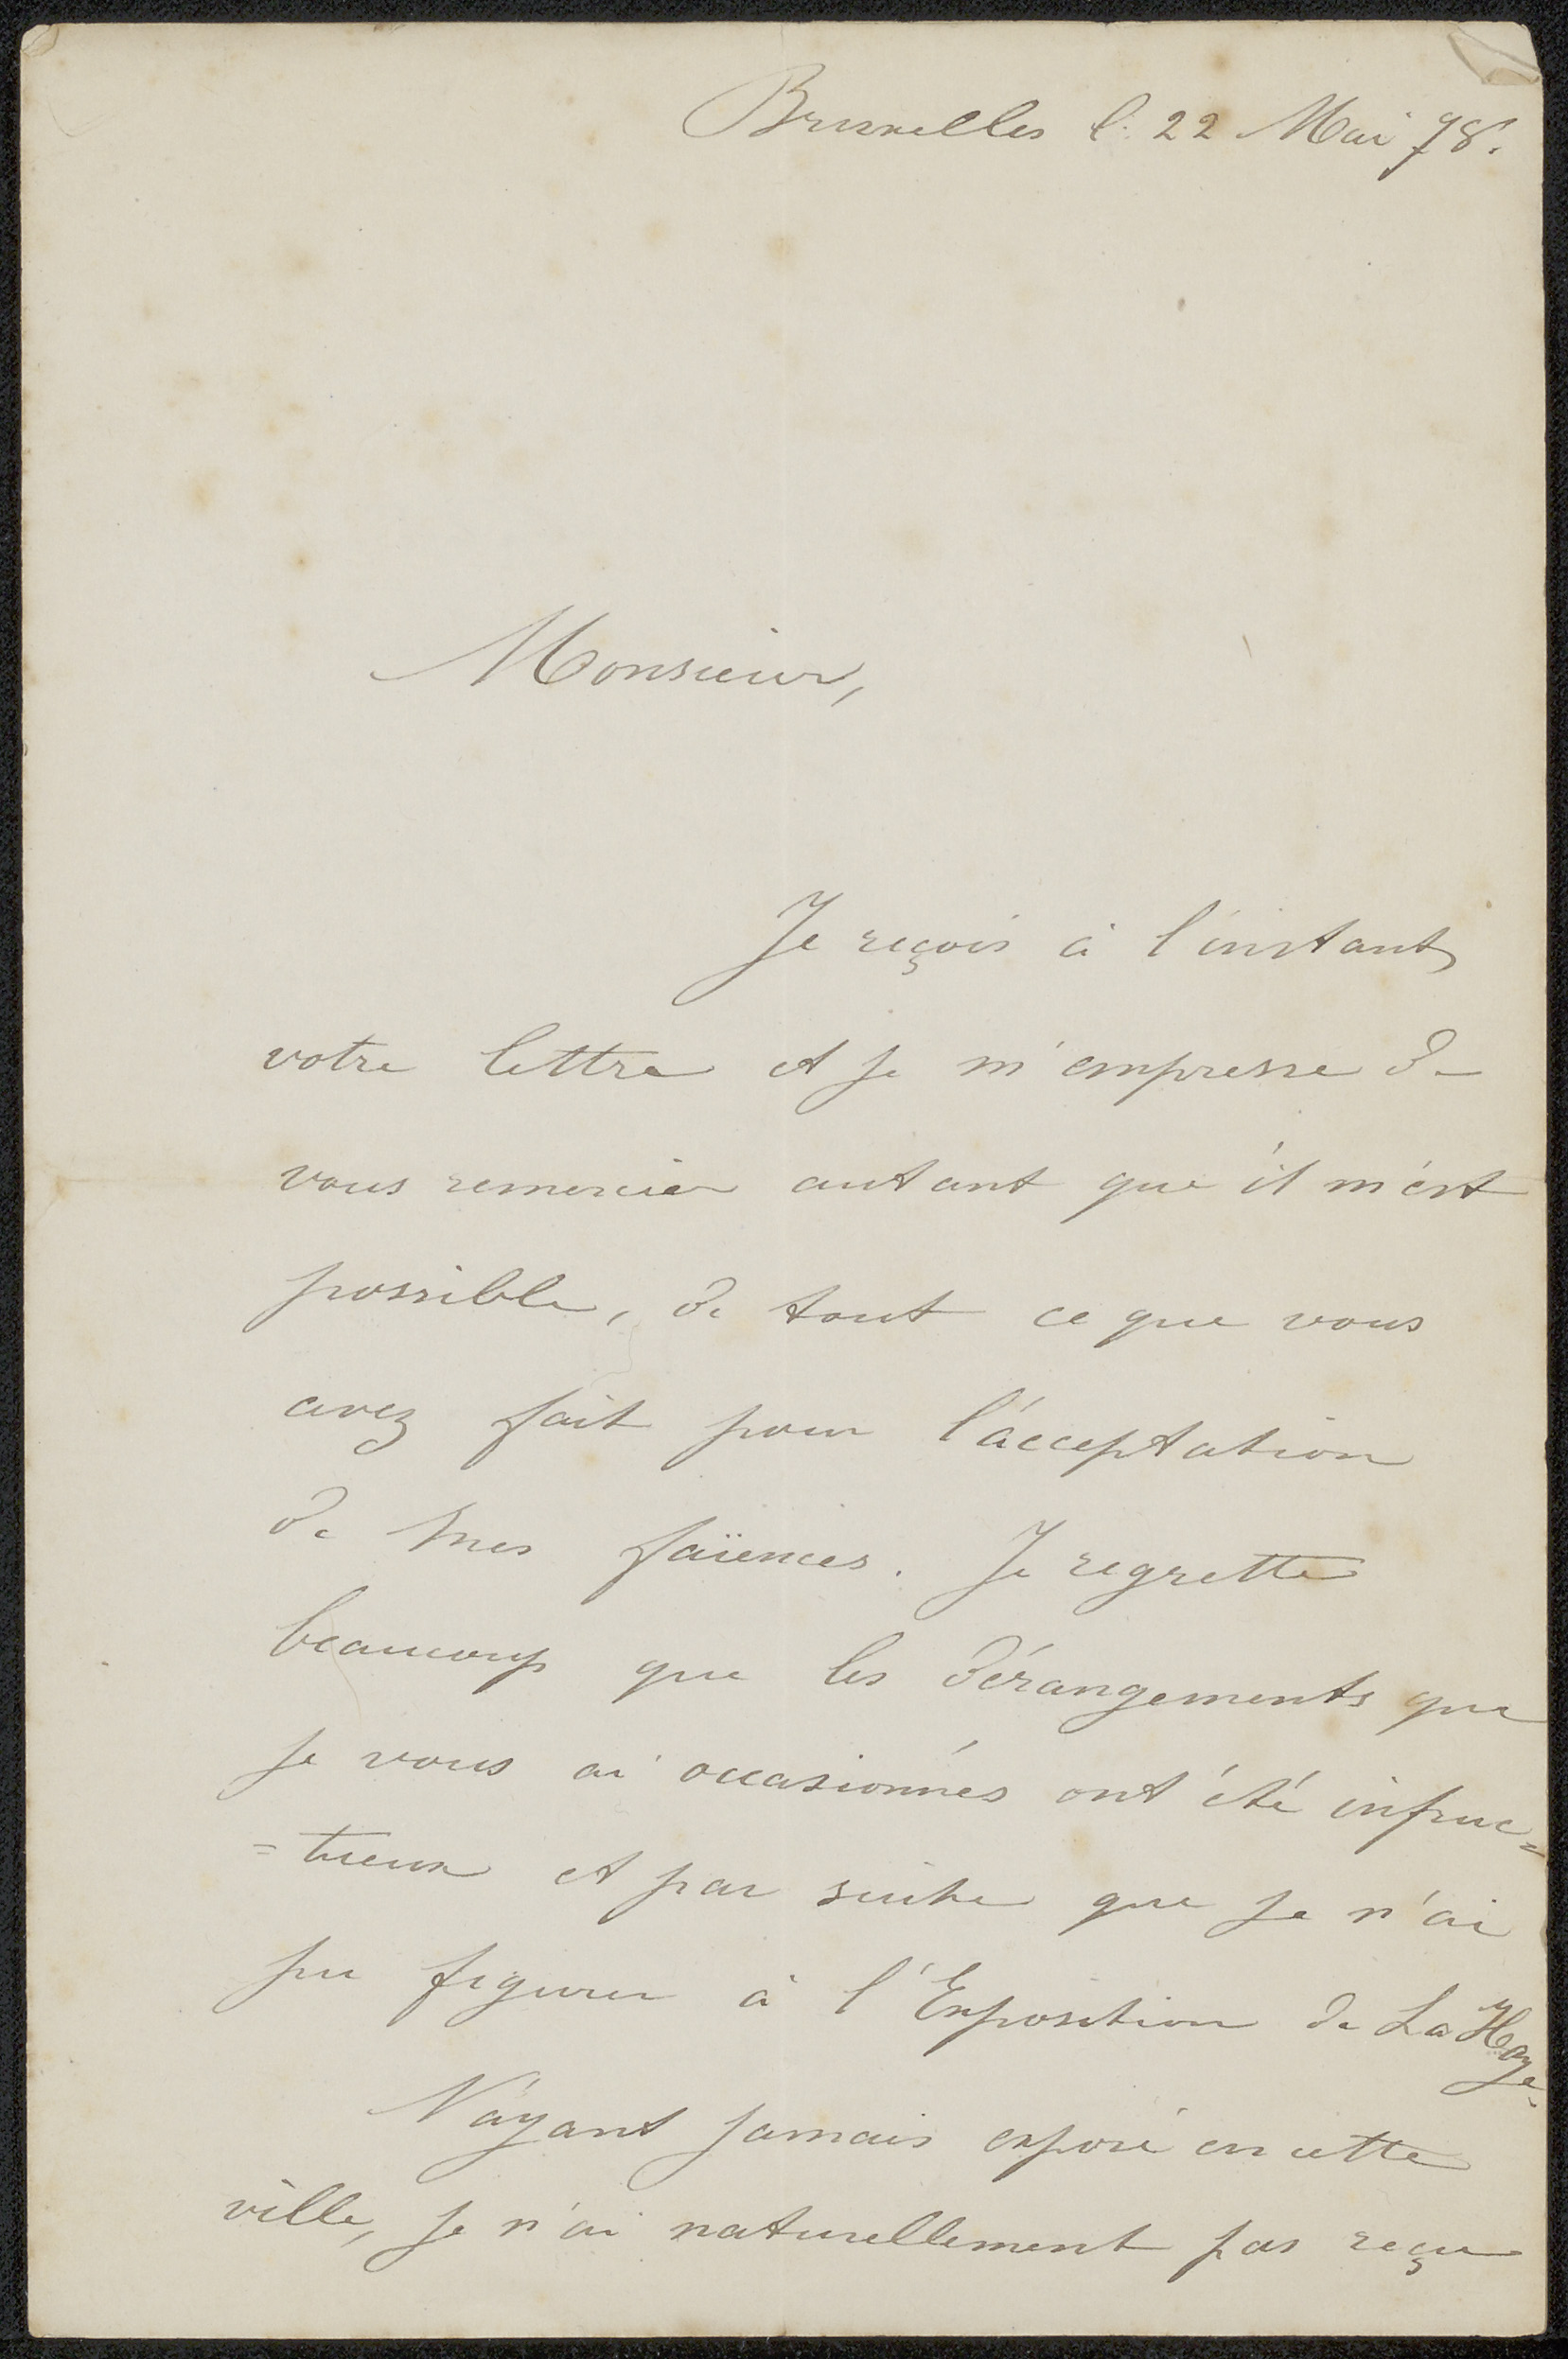 Bruxelles l. 22 Mai 78.
Monsieur,
Je reçois à l'instant
votre lettre et je m'empresse de
vous remercier autant que il m'est
possible, de tout ce que vous
avez fait pour l'acceptation
de mes faïences. Je regrette
beaucoup que les dérangements que
je vous ai occasionnés ont été infruc=
=tueux et par suite que je n'ai
pu figurer à l'Exposition de La Haye.
N'ayant jamais exposé en cette
ville, je n'ai naturellement pas reçu